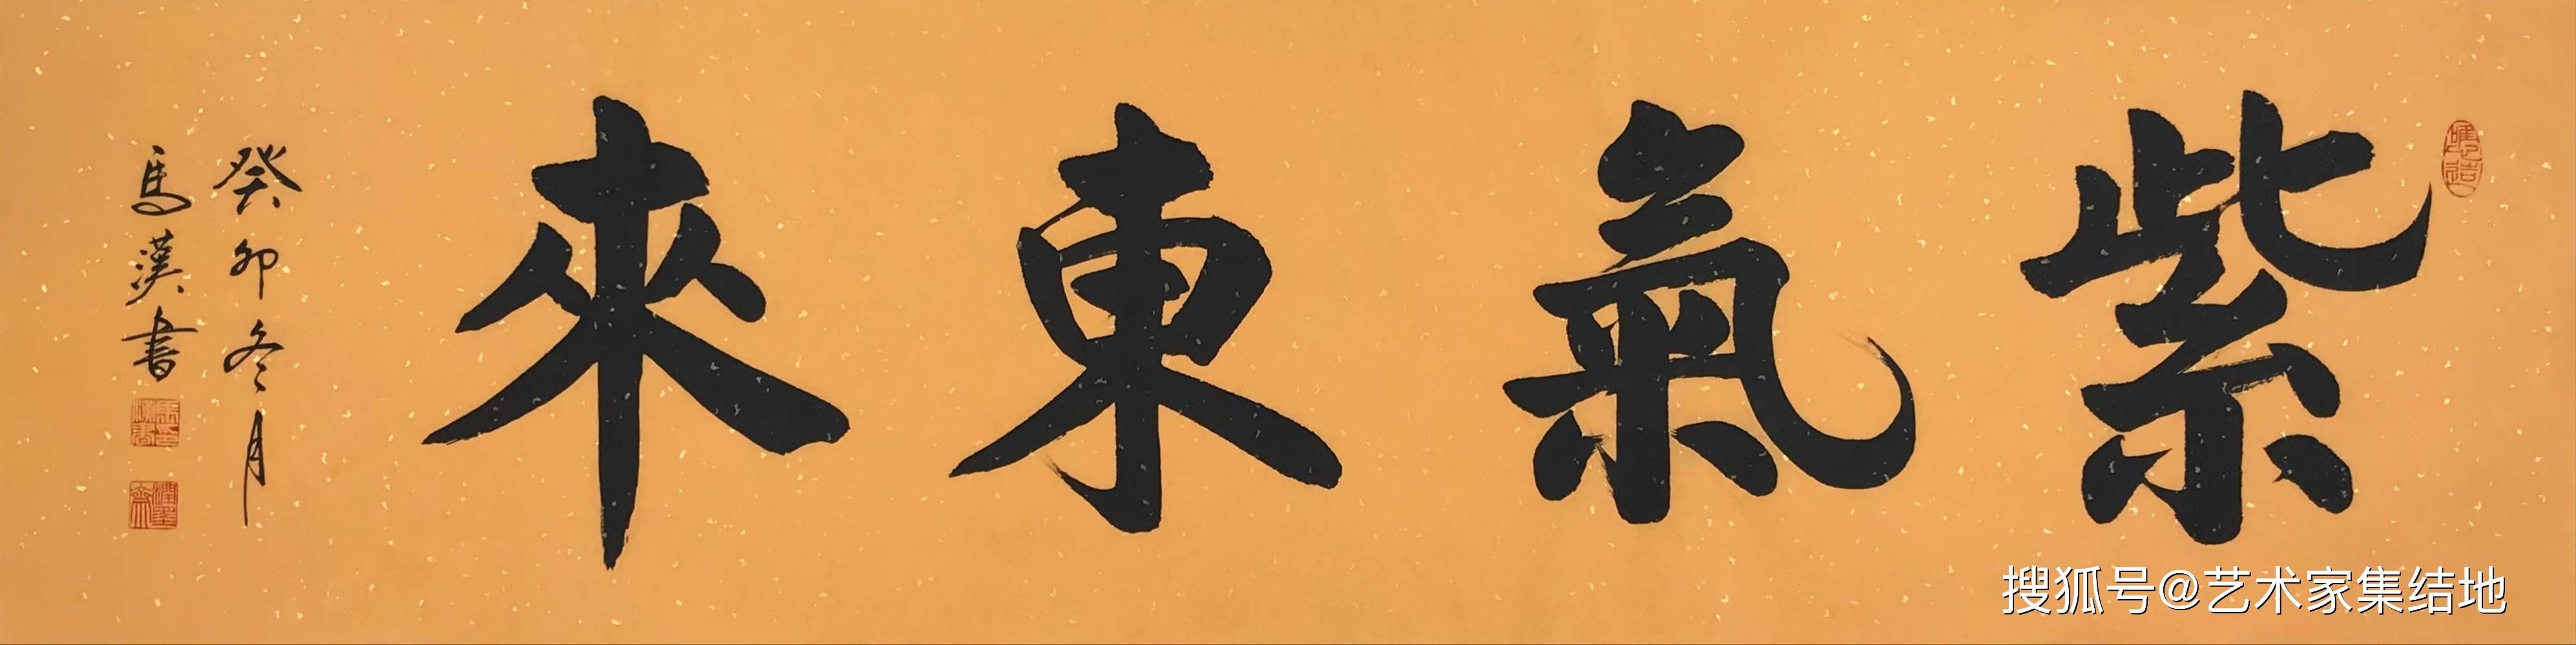 紫氣東來
癸卯冬月
馬漢書
搜狐号@艺术家集结地